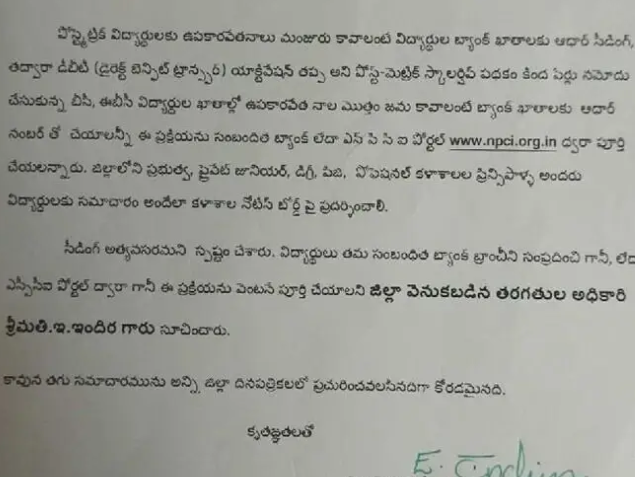 పోస్ట్మెట్రిక్ విద్యార్థులకు ఉపకారవేతనాలు మంజూరు కావాలంటే విద్యార్థుల బ్యాంక్ ఖాతాలకు ఆధార్ సీడింగ్,
తద్వారా డీబీటీ (డైరెక్ట్ బెన్ఫిట్ ట్రాన్స్ఫర్) యాక్టివేషన్ తప్ప అని పోస్ట్-మెట్రిక్ స్కాలర్షిప్ పథకం కింద పేర్లు నమోదు
చేసుకున్న బీసీ, ఈబీసీ విద్యార్థుల ఖాతాల్లో ఉపకారవేత నాల మొత్తం జమ కావాలంటే బ్యాంక్ ఖాతాలకు ఆధార్
నంబర్ తో చేయాలన్నీ ఈ ప్రక్రియను సంబందిత బ్యాంక్ లేదా ఎన్ పి సి ఐ పోర్టల్ www.npci.org.in ద్వరా పూర్తి
చేయలన్నారు. జిల్లాలోని ప్రభుత్వ, ప్రైవేట్ జూనియర్, డిగ్రీ, పిజి, ప్రొఫెషనల్ కళాశాలల ప్రిన్సిపాళ్ళు అందరు
విద్యార్థులకు సమాచారం అందేలా కళాశాల నోటీస్ బోర్డ్ పై ప్రదర్శించాలి.
సీడింగ్ అత్యవసరమని స్పష్టం చేశారు. విద్యార్థులు తమ సంబంధిత బ్యాంక్ బ్రాంచీని సంప్రదించి గానీ, లేదా
ఎన్పీసీఐ పోర్టల్ ద్వారా గానీ ఈ ప్రక్రియను వెంటనే పూర్తి చేయాలని జిల్లా వెనుకబడిన తరగతుల అధికారి
శ్రీమతి.ఇ.ఇందిర గారు సూచించారు.
కావున తగు సమాచారమును అన్ని జిల్లా దినపత్రికలలో ప్రచురించవలసినదిగా కోరడమైనది.
కృతజ్ఞతలతో